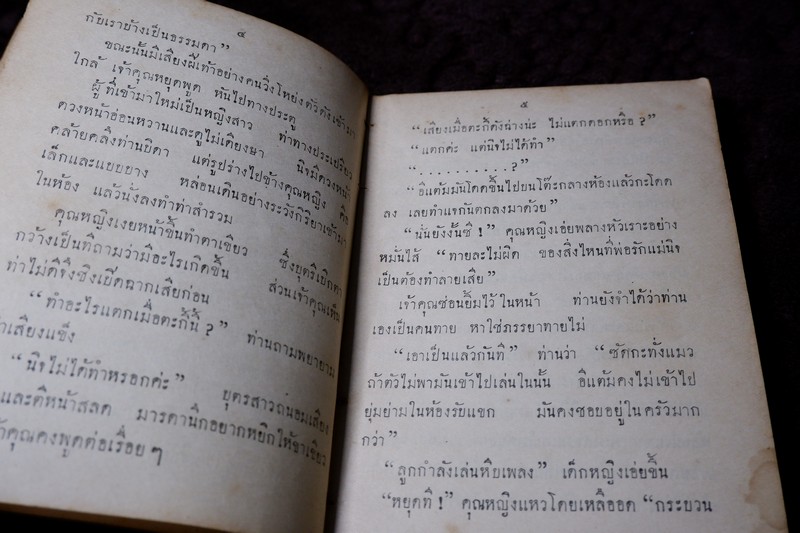 ๔
กับเราบ้างเป็นธรรมดา”
ขณะนั้นมีเสียงฝีเท้าอย่างคนวิ่งโหย่งตัวดังเข้ามา
ใกล้ เจ้าคุณหยุดพูด หันไปทางประตู
ผู้ที่เข้ามาใหม่เป็นหญิงสาว ท่าทางประเปรียว
ดวงหน้าอ่อนหวานและดูไม่เดียงษา นีจมีดวงหน้า
คล้ายคลึงท่านบิดา แต่รูปร่างไปข้างคุณหญิง คือ
เล็กและแบบบาง หล่อนเดินอย่างระวังกิริยาเข้ามา
ในห้อง แล้วนั่งลงทำท่าสำรวม
คุณหญิงเงยหน้าขึ้นทำตาเขียว ซึ่งบุตรีเบิกตา
กว้างเป็นที่ถามว่ามีอะไรเกิดขึ้น ส่วนเจ้าคุณเห็น
ท่าไม่ดีจึงชิงเบิดฉากเสียก่อน
“ทำอะไรแตกเมื่อตะกี้นี้?” ท่านถามพยายาม
เสียงแข็ง
“นีจไม่ได้ทำหรอกค่ะ” บุตรสาวถนอมเสียง
และตีหน้าสลด มารดานึกอยากหยิกให้ขาเขียว
เจ้าคุณคงพูดต่อเรื่อยๆ
๕
“เสียงเมื่อตะกี้ดังฉ่างน่ะ ไม่แตกดอกหรือ?”
“แตกค่ะ แต่นีจไม่ได้ทำ”
“. . . . . . . . . .?”
“อีแต้มมันโดดขึ้นไปบนโต๊ะกลางห้องแล้วกะโดด
ลง เลยทำแจกันตกลงมาด้วย”
“นั่นยังงั้นซี!” คุณหญิงเอ่ยพลางหัวเราะอย่าง
หมั่นไส้ “ทายละไม่ผิด ของสิ่งไหนที่พ่อรักแม่นีจ
เป็นต้องทำลายเสีย”
เจ้าคุณซ่อนยิ้มไว้ในหน้า ท่านยังจำได้ว่าท่าน
เองเป็นคนทาย หาใช่ภรรยาทายไม่
“เอาเป็นแล้วกันที” ท่านว่า “ซัดกะทั่งแมว
ถ้าตัวไม่พามันเข้าไปเล่นในนั้น อีแต้มคงไม่เข้าไป
ยุ่มย่ามในห้องรับแขก มันคงชอบอยู่ในครัวมาก
กว่า”
“ลูกกำลังเล่นหีบเพลง” เด็กหญิงเอ่ยขึ้น
“หยุดที!” คุณหญิงแหวโดยเหลืออด “กระบวน